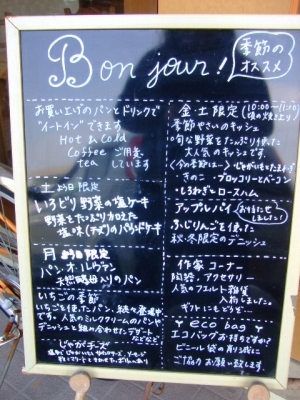 Bon jour!
季節の
オススメ
お買い上げのパンとドリンクで
"イートイン"できます
Hot & Cold
Coffee ご用意
tea しています
土よう日 限定
いろどり野菜の塩ケーキ
野菜をたっぷりカロえた
塩味(チーズ)のパウンドケーキ
月よう日 限定
パン オ ルヴァン
天然酵母入りのパン
いちごの季節
いちごを使ったパン、続々登場中
です。人気のミルククリームのパンや
デニッシュと組み合わせたデザート
などなど
じゃがチーズ
金・土 限定
(10:00~11:10
頃の焼き上り)
季節やさいのキッシュ
旬な野菜をたっぷり使った
大人気のキッシュです。
〈今の季節は…〉
きのこ・ブロッコリーとベーコン
しろねぎとロースハム
アップルパイ
おまたせ
しました!
ふじりんごを使った
秋・冬限定のデニッシュ
作家コーナー
陶器・アクセサリー
人気のフエルト雑貨
入荷しました。
ギフトにもどうぞ
eco bag
エコバッグお持ちですか?
ビニール袋の削減に
ご協力お願い致します。